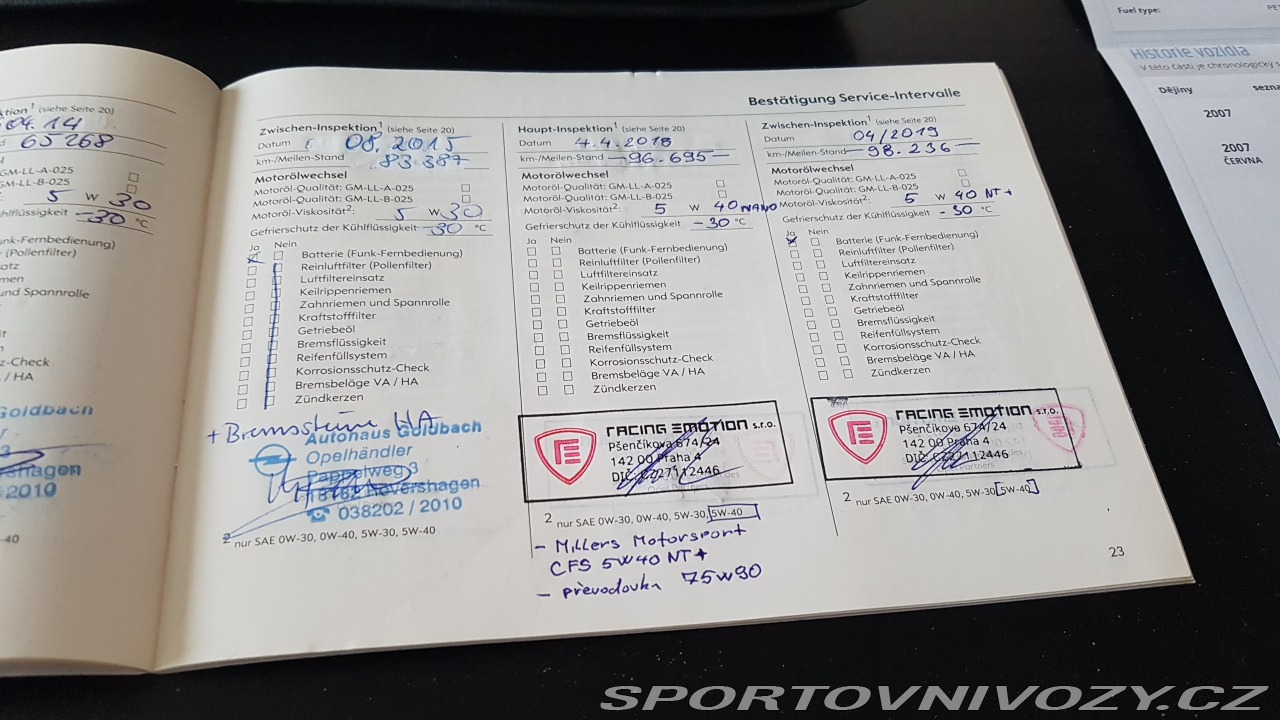 Fuel type:
Historie vozidla
V této části je chronologicky s
Dějiny sezna
2007
2007
ČERVNA
ktion¹ (siehe Seite 20)
04.14
65268
GM-LL-A-025
GM-LL-B-025
5 W 30
ühlflüssigkeit -30 °C
unk-Fernbedienung)
(Pollenfilter)
satz
men
und Spannrolle
it
z-Check
/ HA
Goldbach
shagen
2010
-40
Bestätigung Service-Intervalle
Zwischen-Inspektion¹ (siehe Seite 20)
Datum 08.2015
km-/Meilen-Stand 83.387
Motorölwechsel
Motoröl-Qualität: GM-LL-A-025
Motoröl-Qualität: GM-LL-B-025
Motoröl-Viskosität²: 5 W 30
Gefrierschutz der Kühlflüssigkeit -30 °C
Ja Nein
Batterie (Funk-Fernbedienung)
Reinluftfilter (Pollenfilter)
Luftfiltereinsatz
Keilrippenriemen
Zahnriemen und Spannrolle
Kraftstofffilter
Getriebeöl
Bremsflüssigkeit
Reifenfüllsystem
Korrosionsschutz-Check
Bremsbeläge VA / HA
Zündkerzen
HA
Autohaus Goldbach
Opelhändler
Pappelweg 3
18182 Rövershagen
038202 / 2010
2 nur SAE 0W-30, 0W-40, 5W-30, 5W-40
Haupt-Inspektion¹ (siehe Seite 20)
Datum 4.4.2018
km-/Meilen-Stand —96.695—
Motorölwechsel
Motoröl-Qualität: GM-LL-A-025
Motoröl-Qualität: GM-LL-B-025
Motoröl-Viskosität²: 5 W 40 NANO
Gefrierschutz der Kühlflüssigkeit -30 °C
Ja Nein
Batterie (Funk-Fernbedienung)
Reinluftfilter (Pollenfilter)
Luftfiltereinsatz
Keilrippenriemen
Zahnriemen und Spannrolle
Kraftstofffilter
Getriebeöl
Bremsflüssigkeit
Reifenfüllsystem
Korrosionsschutz-Check
Bremsbeläge VA / HA
Zündkerzen
RACING EMOTION s.r.o.
Pšenčíkova 674/24
142 00 Praha 4
DIČ CZ27112446
2 nur SAE 0W-30, 0W-40, 5W-30, 5W-40
- Millers Motorsport
CFS 5W40 NT+
- převodovka 75W90
Zwischen-Inspektion¹ (siehe Seite 20)
Datum 04/2019
km-/Meilen-Stand —98.236—
Motorölwechsel
Motoröl-Qualität: GM-LL-A-025
Motoröl-Qualität: GM-LL-B-025
Motoröl-Viskosität²: 5 W 40 NT+
Gefrierschutz der Kühlflüssigkeit -30 °C
Ja Nein
Batterie (Funk-Fernbedienung)
Reinluftfilter (Pollenfilter)
Luftfiltereinsatz
Keilrippenriemen
Zahnriemen und Spannrolle
Kraftstofffilter
Getriebeöl
Bremsflüssigkeit
Reifenfüllsystem
Korrosionsschutz-Check
Bremsbeläge VA / HA
Zündkerzen
RACING EMOTION s.r.o.
Pšenčíkova 674/24
142 00 Praha 4
DIČ CZ27112446
2 nur SAE 0W-30, 0W-40, 5W-30, 5W-40
23
SPORTOVNIVOZY.CZ